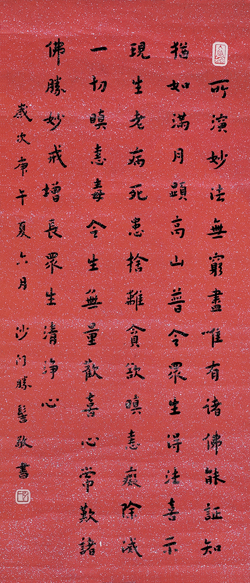 所演妙法無窮盡唯有諸佛能証知
猶如滿月顯高山普令眾生得法喜示
現生老病死患捨離貪欲瞋恚癡除滅
一切瞋恚毒令生無量歡喜心常歎諸
佛勝妙戒增長眾生清淨心
歲次庚午夏六月 沙门勝髻敬書